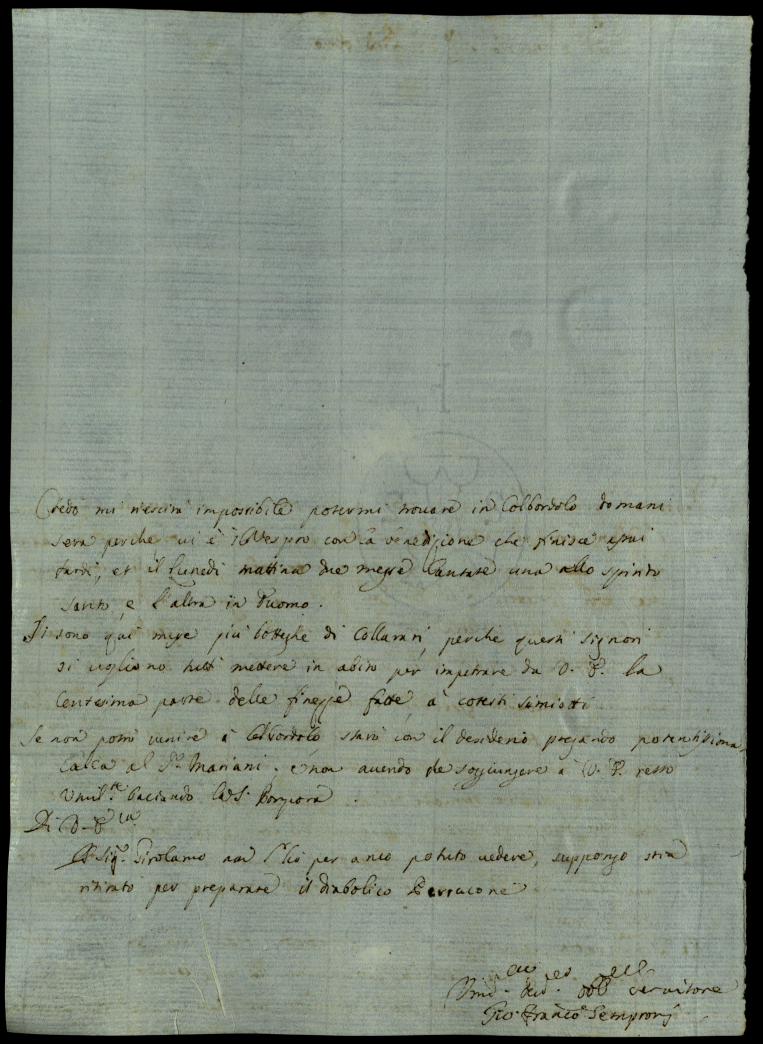 Credo mi riescirà impossibile potermi trovare in Colbordolo domani
sera perche vi è il Vespro con la benedizione che finisce assai
tardi, et il Lunedì mattina due messe Cantate una allo Spirito
Santo, e l'altra in Duomo.
Si sono qui messe più botteghe di Collarari, perche questi Signori
si vogliono tutti mettere in abito per impetrare da V. P. la
Centesima parte delle finezze fatte à cotesti Simiotti
Se non potrò venire à Colbordolo starò con il desiderio pregando potentissima
al Sr. Mariani, e non avendo che soggiungere à V. P. resto
Umilte. baciando la S. Porpora.
Di V. P.
Il Sigr. Girolamo non l'hò per anco potuto vedere, suppongo stia
ritirato per preparare il diabolico
Servitore
Gio: Franco. Sempronj